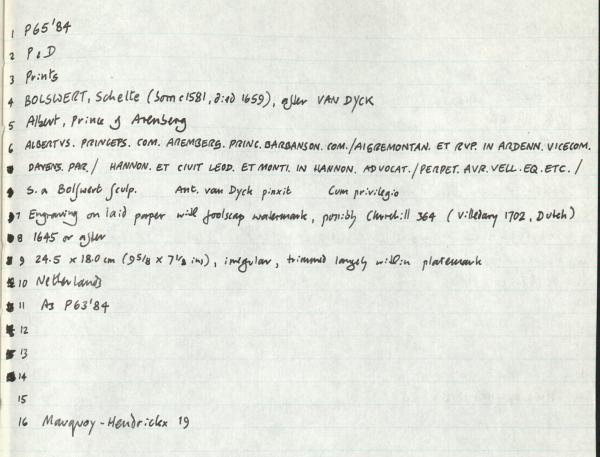 1 P65'84
2 P & D
3 Prints
4 BOLSWERT, Schelte (born c1581, died 1659), after VAN DYCK
5 Albert, Prince of Arenberg
6 ALBERTVS. PRINCEPS. COM. AREMBERG. PRINC. BARBANSON. COM./AIGREMONTAN. ET RVP. IN ARDENN. VICECOM.
DAVENS. PAR./ HANNON. ET CIVIT LEOD. ET MONTI. IN HANNON. ADVOCAT./PERPET. AVR. VELL. EQ. ETC./
S. a Bolswert Sculp. Ant. van Dyck pinxit Cum privilegio
7 Engraving on laid paper with foolscap watermark, possibly Churchill 364 (Villedary 1702, Dutch)
8 1645 or after
9 24.5 x 18.0 cm (9 5/8 x 7 1/8 in), irregular, trimmed largely within platemark
10 Netherlands
11 As P63'84
12
13
14
15
16 Mauquoy-Hendrickx 19